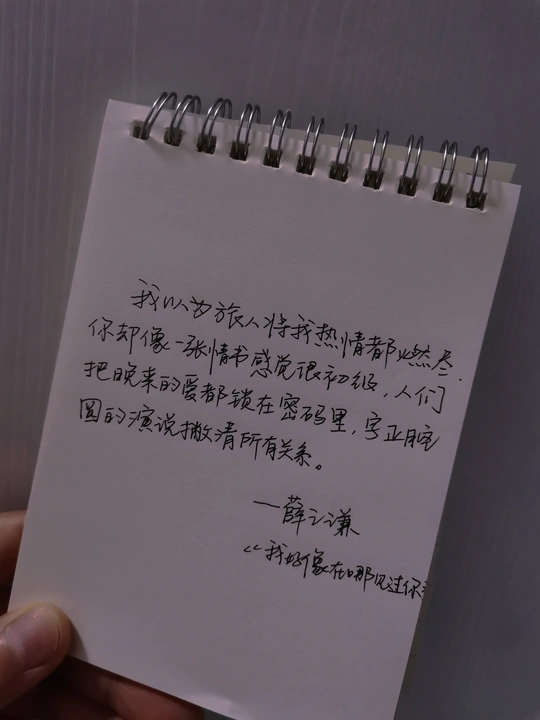 我以为旅人将我热情都燃尽.
你却像一张情书感觉很初级，人们
把晚来的爱都锁在密码里，字正腔
圆的演说撇清所有关系。
—薛之谦
《我好像在哪见过你》